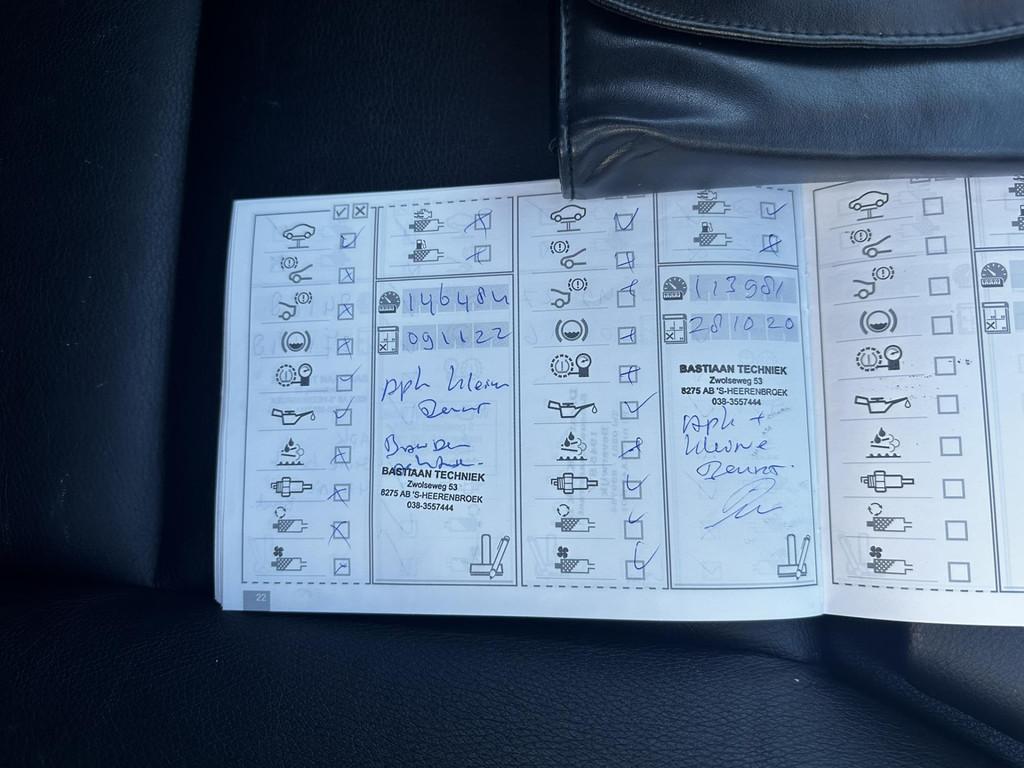 146484
091122
Aph kleine
Beurt
BASTIAAN TECHNIEK
Zwolseweg 53
8275 AB 'S-HEERENBROEK
038-3557444
113981
281020
BASTIAAN TECHNIEK
Zwolseweg 53
8275 AB 'S-HEERENBROEK
038-3557444
Apk +
kleine
Beurt
22